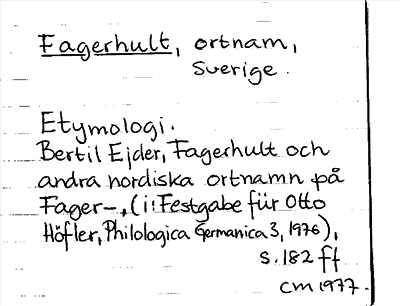 Fagerhult, ortnam,
Sverige.
Etymologi.
Bertil Ejder, Fagerhult och
andra nordiska ortnamn på
Fager-, (i: Festgabe für Otto
Höfler, Philologica Germanica 3, 1976),
s. 182 ff
cm 1977.